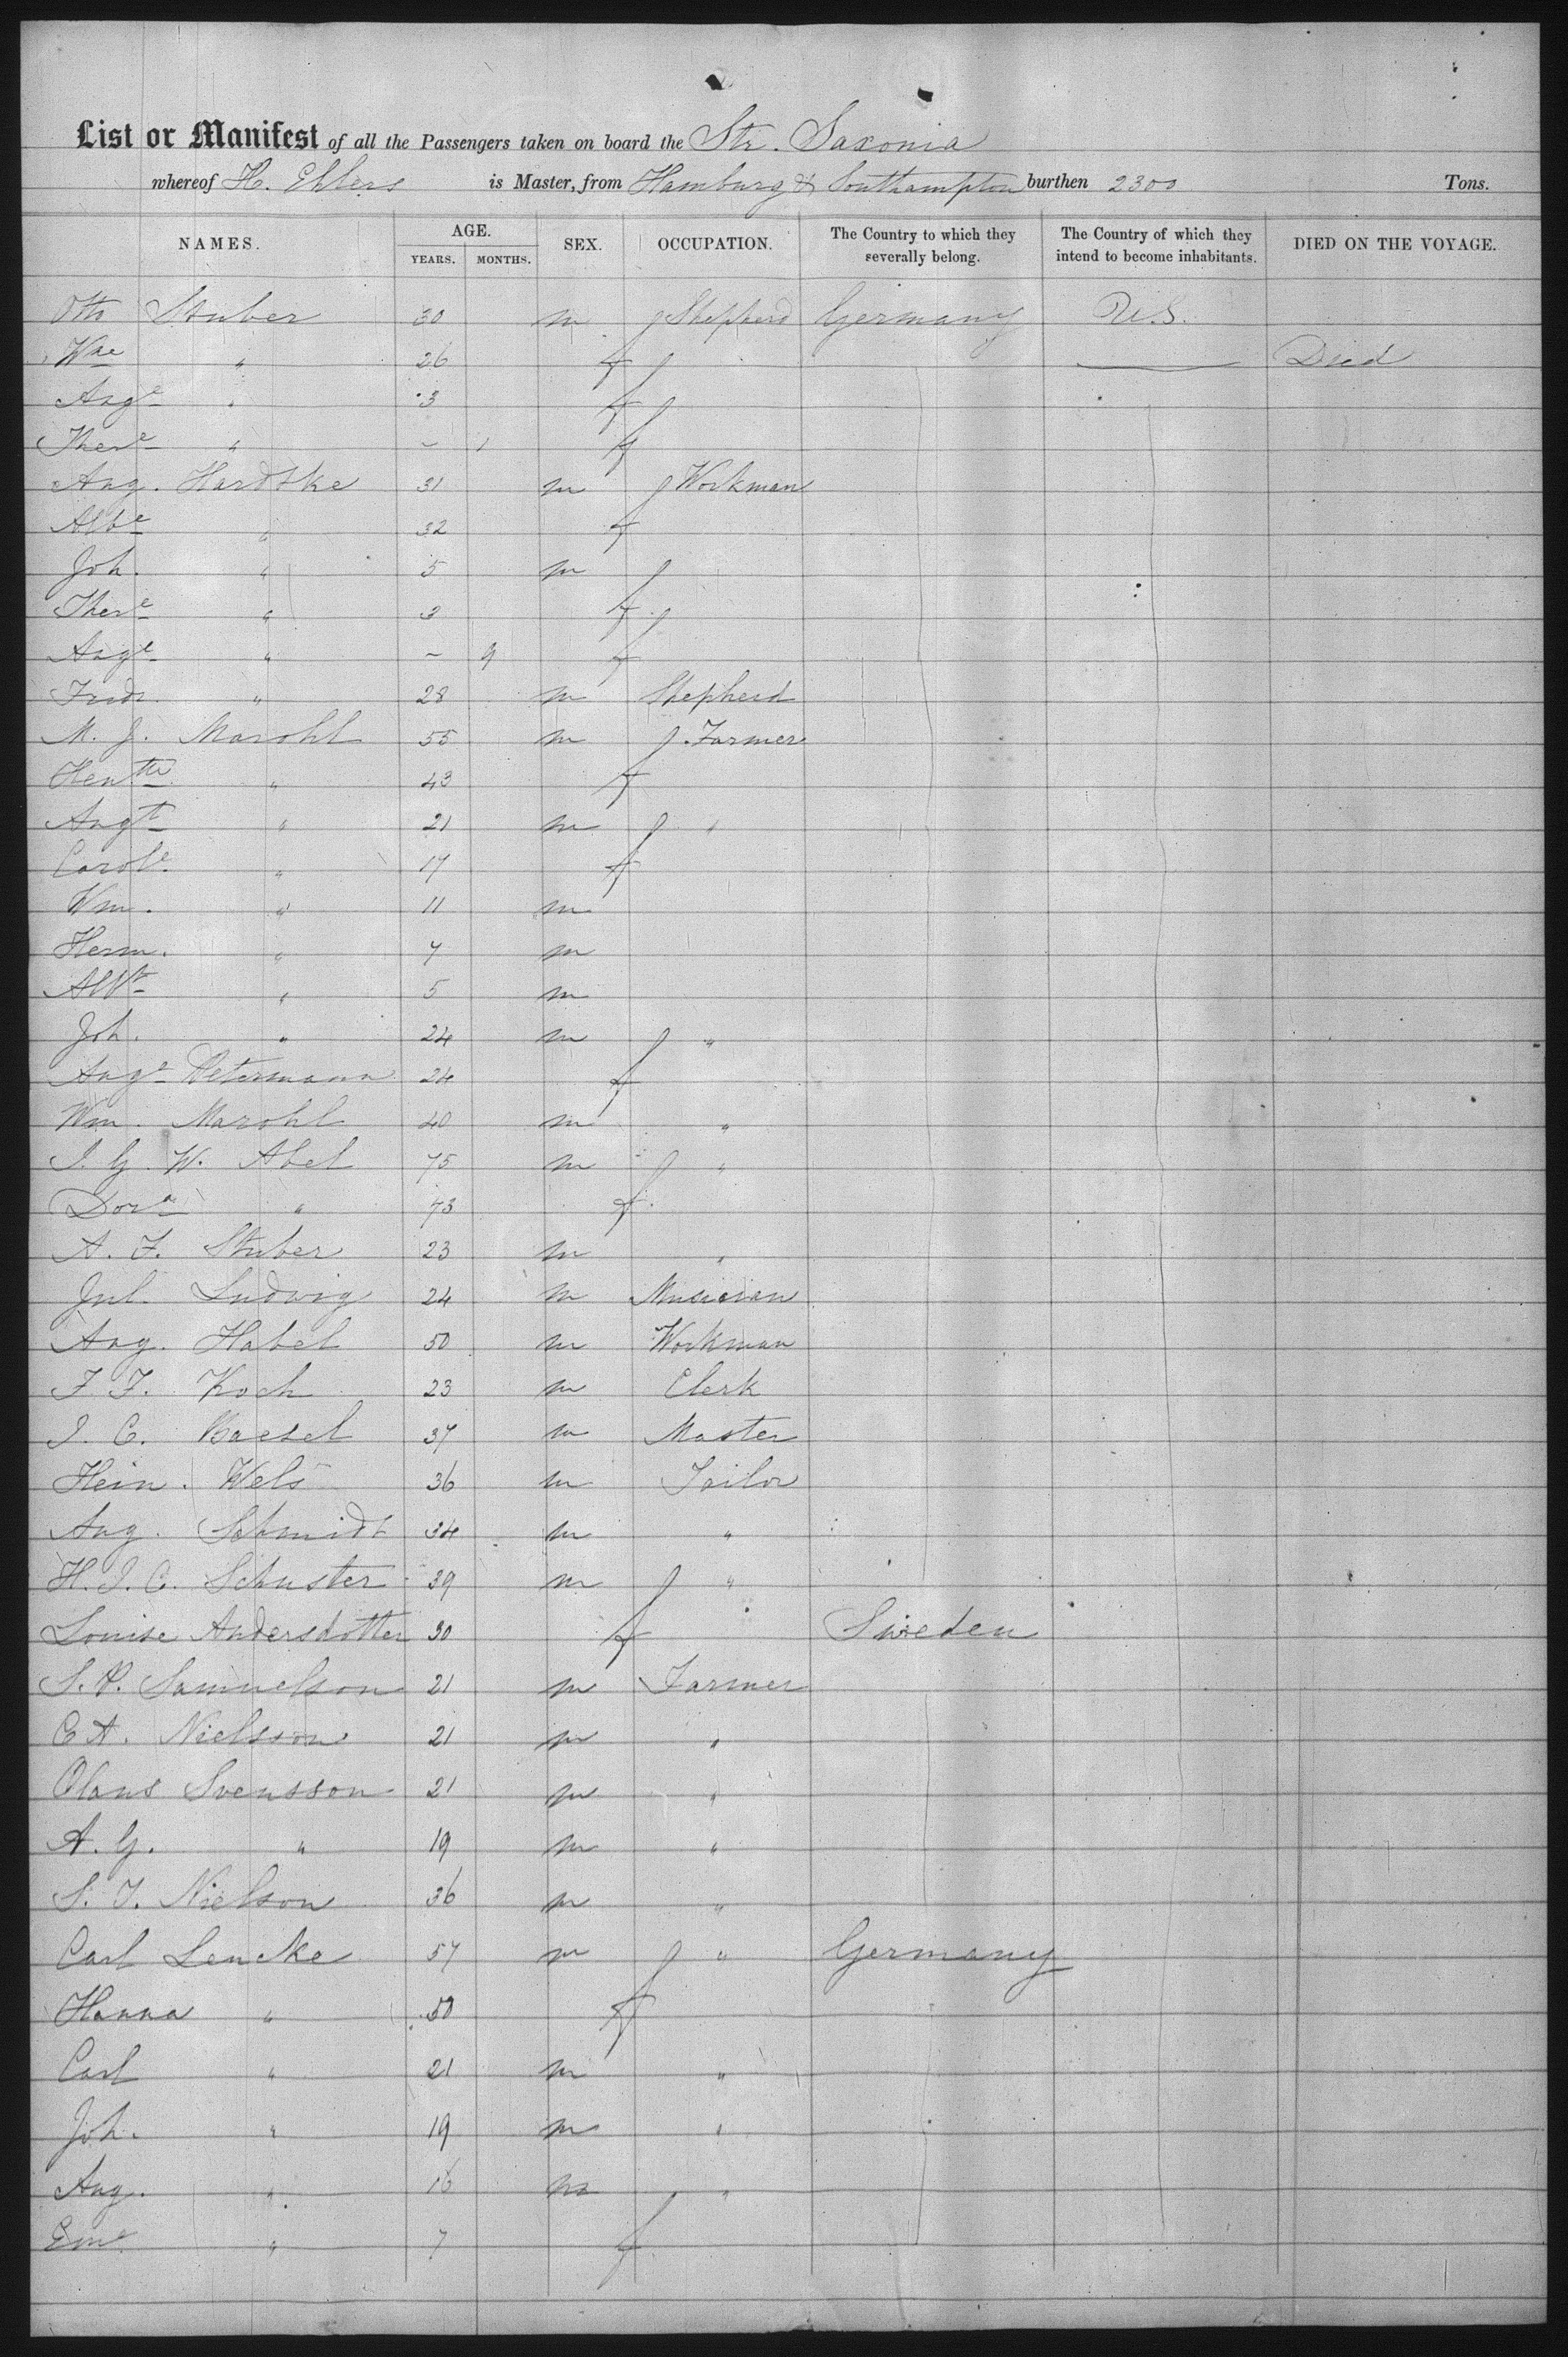 List or Manifest of all the Passengers taken on board the Str. Saxonia
whereof H. Ehlers is Master, from Hamburg & Southampton burthen 2300 Tons.
NAMES. AGE. YEARS. MONTHS. SEX. OCCUPATION. The Country to which they severally belong. The Country of which they intend to become inhabitants. DIED ON THE VOYAGE.
Otto Stuber 30 m Shepherd Germany U.S.
Wne " 26 f Died
Auge " 3 f
There " – 1 f
Aug. Hardtke 31 m Workman
Albe " 32 f
Joh. " 5 m
There " 3 f
Auge " – 9 f
Fridr. " 28 m Shepherd
M. J. Marohl 55 m Farmer
Hentte " 43 f
Augt " 21 m "
Carole " 17 f
Wm. " 11 m
Herm. " 7 m
Albt " 5 m
Joh. " 24 m "
Auge Petermann 24 f
Wm. Marohl 40 m "
J. G. W. Abel 75 m "
Dora " 73 f
A. F. Stuber 23 m "
Jul. Ludwig 24 m Musician
Aug. Habel 50 m Workman
F. F. Koch 23 m Clerk
J. C. Baesel 37 m Master
Hein. Wels 36 m Tailor
Aug. Schmidt 34 m "
H. J. C. Schuster 39 m "
Louise Andersdotter 30 f Sweden
S. P. Samuelson 21 m Farmer
C A. Nielsson 21 m "
Olaus Svensson 21 m "
A. G. " 19 m "
S. J. Nielson 36 m "
Carl Lencke 57 m " Germany
Hanna " 50 f
Carl " 21 m "
Joh. " 19 m "
Aug. " 16 m "
Eme " 7 f